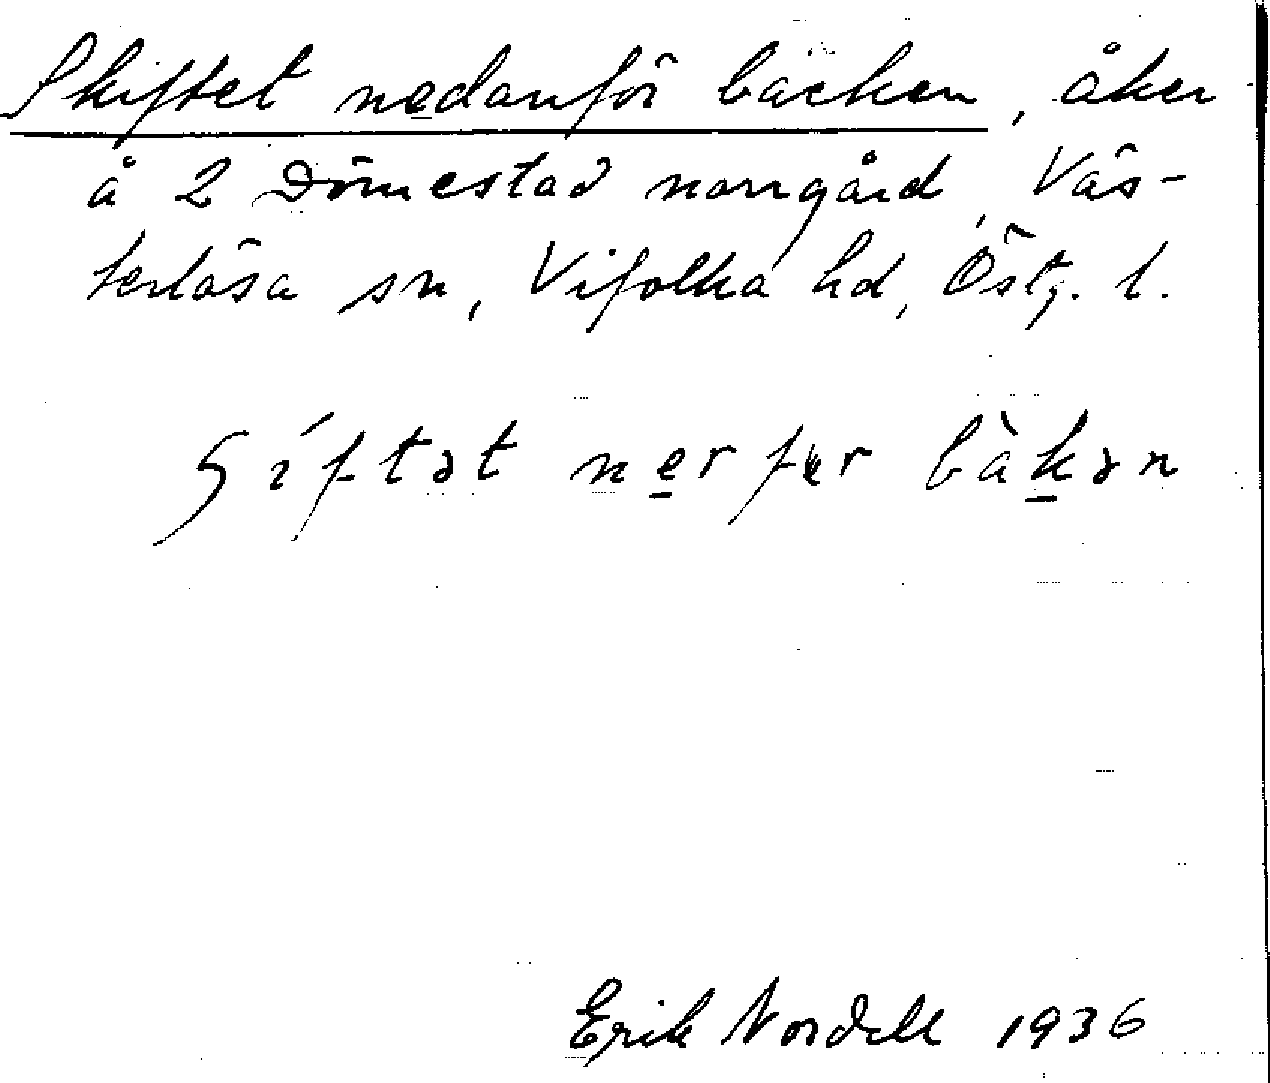 Skiftet nedanför bäcken, åker
å 2 Dömestad norrgård, Väs-
terlösa sn, Vifolka hd, Östg. l.
bäkən
Erik Nordell 1936